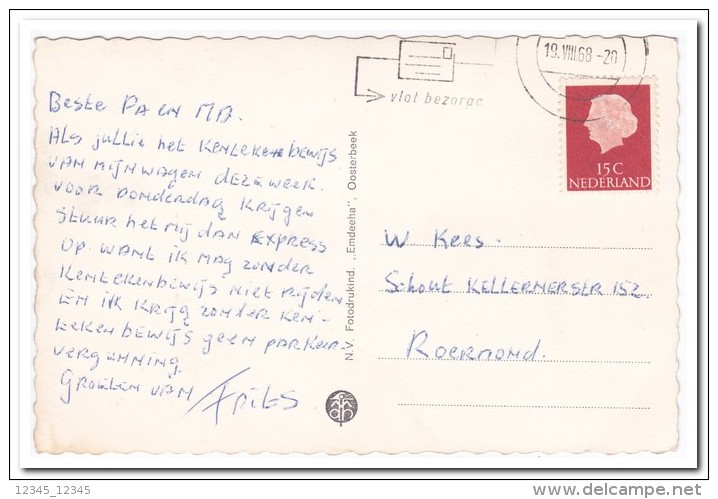 Beste PA en MA.
Als jullie het kentekenbewijs
van mijn wagen deze week.
voor donderdag krijgen
stuur het mij dan express
op want ik mag zonder
kentekenbewijs niet rijden
En ik krijg zonder ken-
tekenbewijs geen parkeer-
vergunning.
Groeten van Frits
N.V. Fotodrukind. „Emdeeha", Oosterbeek
vlot bezorgd
19.VIII.68-20
15 C
NEDERLAND
W Kees.
Schout KELLERNERSTR 152
Roermond.
12345_12345
www.delcampe.net